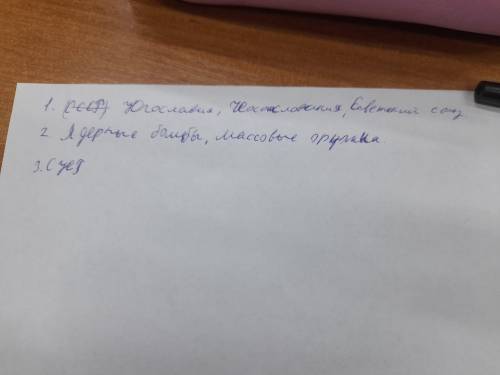 1. Югославия, Чехословакия, Советский союз
2. Ядерные бомбы, массовые оружия.
3. Суєт